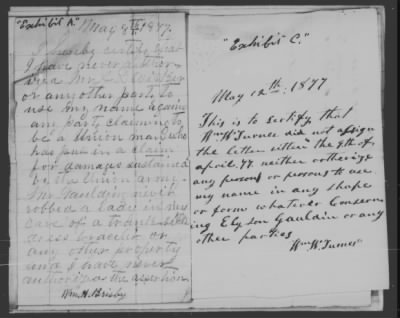 "Exhibit A."
May 8th 1877.
I hereby certify that
I have never
Mr
or any other party to
use my name against
any party claiming to
be a Union man who
has put in a claim
for damages sustained
by the Union army.
Mr Gauldin never
robbed a lady in
case of a trunk
dress bracelet or
any other property
and I have never
authorized the assertion.
Wm. H. Brisby
"Exhibit C."
May 12th: 1877
This is to Certify that
Wm W Turner did not assign
the letter either the 9th of
April 77 neither
any person or persons to use
my name in any shape
or form whatever Concern
ing Elyson Gauldin or any
other parties
Wm W Turner